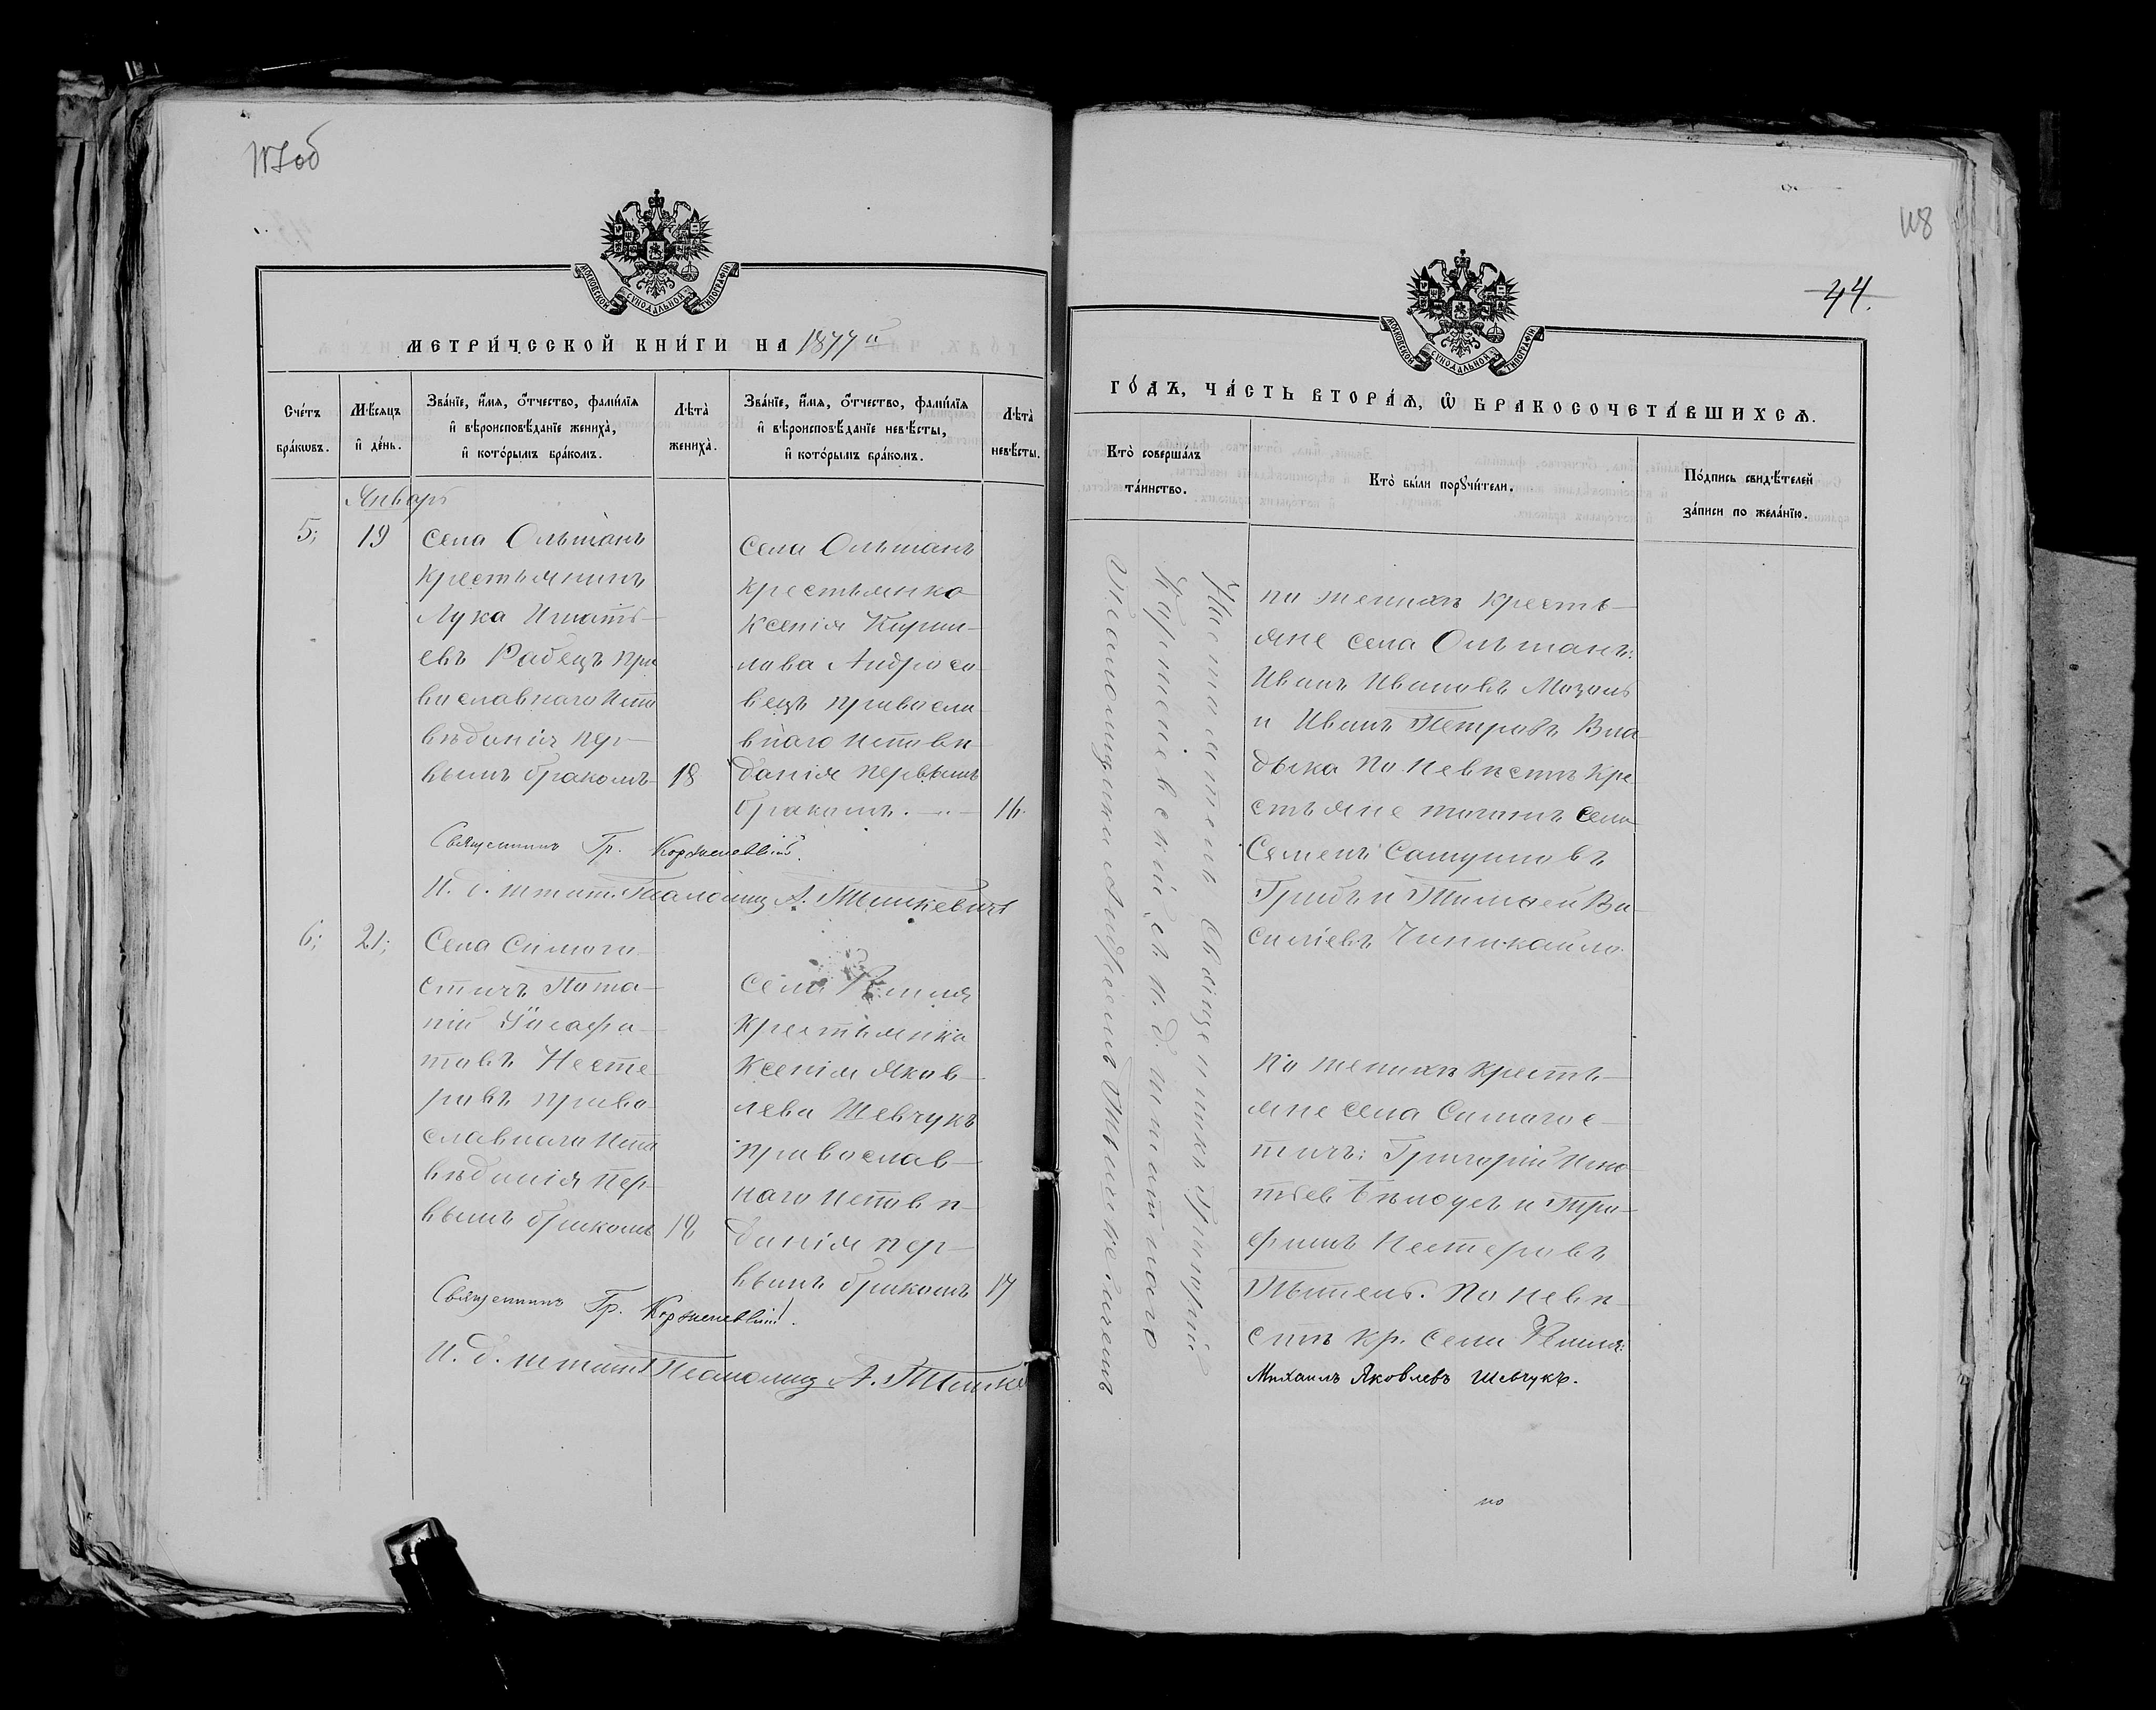 117 об
МОСКОВСКОЙ СУНОДАЛЬНОЙ ТИПОГРАФІИ
МЕТРИ́ЧЕСКОЙ КНИ́ГИ НА 1877 й
Сче́тъ бра́кωвъ.
М́ѣсяцъ и҆ де́нь.
Зва́нїе, и҆́мя, ѻ҆́тчество, фами́лїя
и҆ вѣроисповѣ́данїе жениха̀,
и҆ кото́рымъ бра́комъ.
Лѣта̀ жениха̀.
Зва́нїе, и҆́мя, ѻ҆́тчество, фами́лїя
и҆ вѣроисповѣ́данїе невѣ́сты,
и҆ кото́рымъ бра́комъ.
Лѣта̀ невѣ́сты.
Январь
5; 19
Села Ольманъ
крестьянинъ
Лука Игнатъ-
евъ Рабецъ пра
вославнаго испо
вѣданія пер-
вымъ бракомъ 18
Села Ольманъ
крестьянка
Ксенія Кири-
лова Андросо-
вецъ правосла-
внаго исповѣ-
данія первымъ
бракомъ. 16.
Священникъ Гр. Корженевскій.
И. д. штат. Псаломщ А. Тышкевичъ
6; 21;
Села
стичъ Пота-
пій Іосафа-
товъ Несте-
ровъ право-
славнаго испо
вѣданія пер-
вымъ бракомъ 18
Села
крестьянка
Ксенія Яков-
лева Шевчукъ
православ-
наго исповѣ-
данія пер-
вымъ бракомъ 17
Священникъ Гр. Корженевскій.
И. д. штат Псаломщ А. Тышке
118
44.
МОСКОВСКОЙ СУНОДАЛЬНОЙ ТИПОГРАФІИ
ГО́ДЪ, ЧА́СТЬ ВТОРА́Я, Ѽ БРАКОСОЧЕТА́ВШИХСЯ.
Кто̀ соверша́лъ
та́инство.
Кто̀ бы́ли порꙋчи́тели.
По́дпись свидѣ́телей
за́писи по жела́нїю.
Настоятель Священникъ Григорій
Корженевскій съ и. д. штатнаго
Псаломщика Андреемъ Тышкевичемъ
по женихѣ кресть-
яне села Ольманъ:
Иванъ Ивановъ Мозоль
и Иванъ Петровъ Вла
дыка по невѣстѣ кре-
стьяне тогожъ села
Семенъ
Грибъ и Тимоѳей Ва-
силіевъ
По женихѣ кресть-
яне села
тичъ: Григорій Игна-
тьев и Тро-
фимъ Нестеровъ
По невѣ-
стѣ кр. села
Михаилъ Яковлевъ Шевчукъ.
по